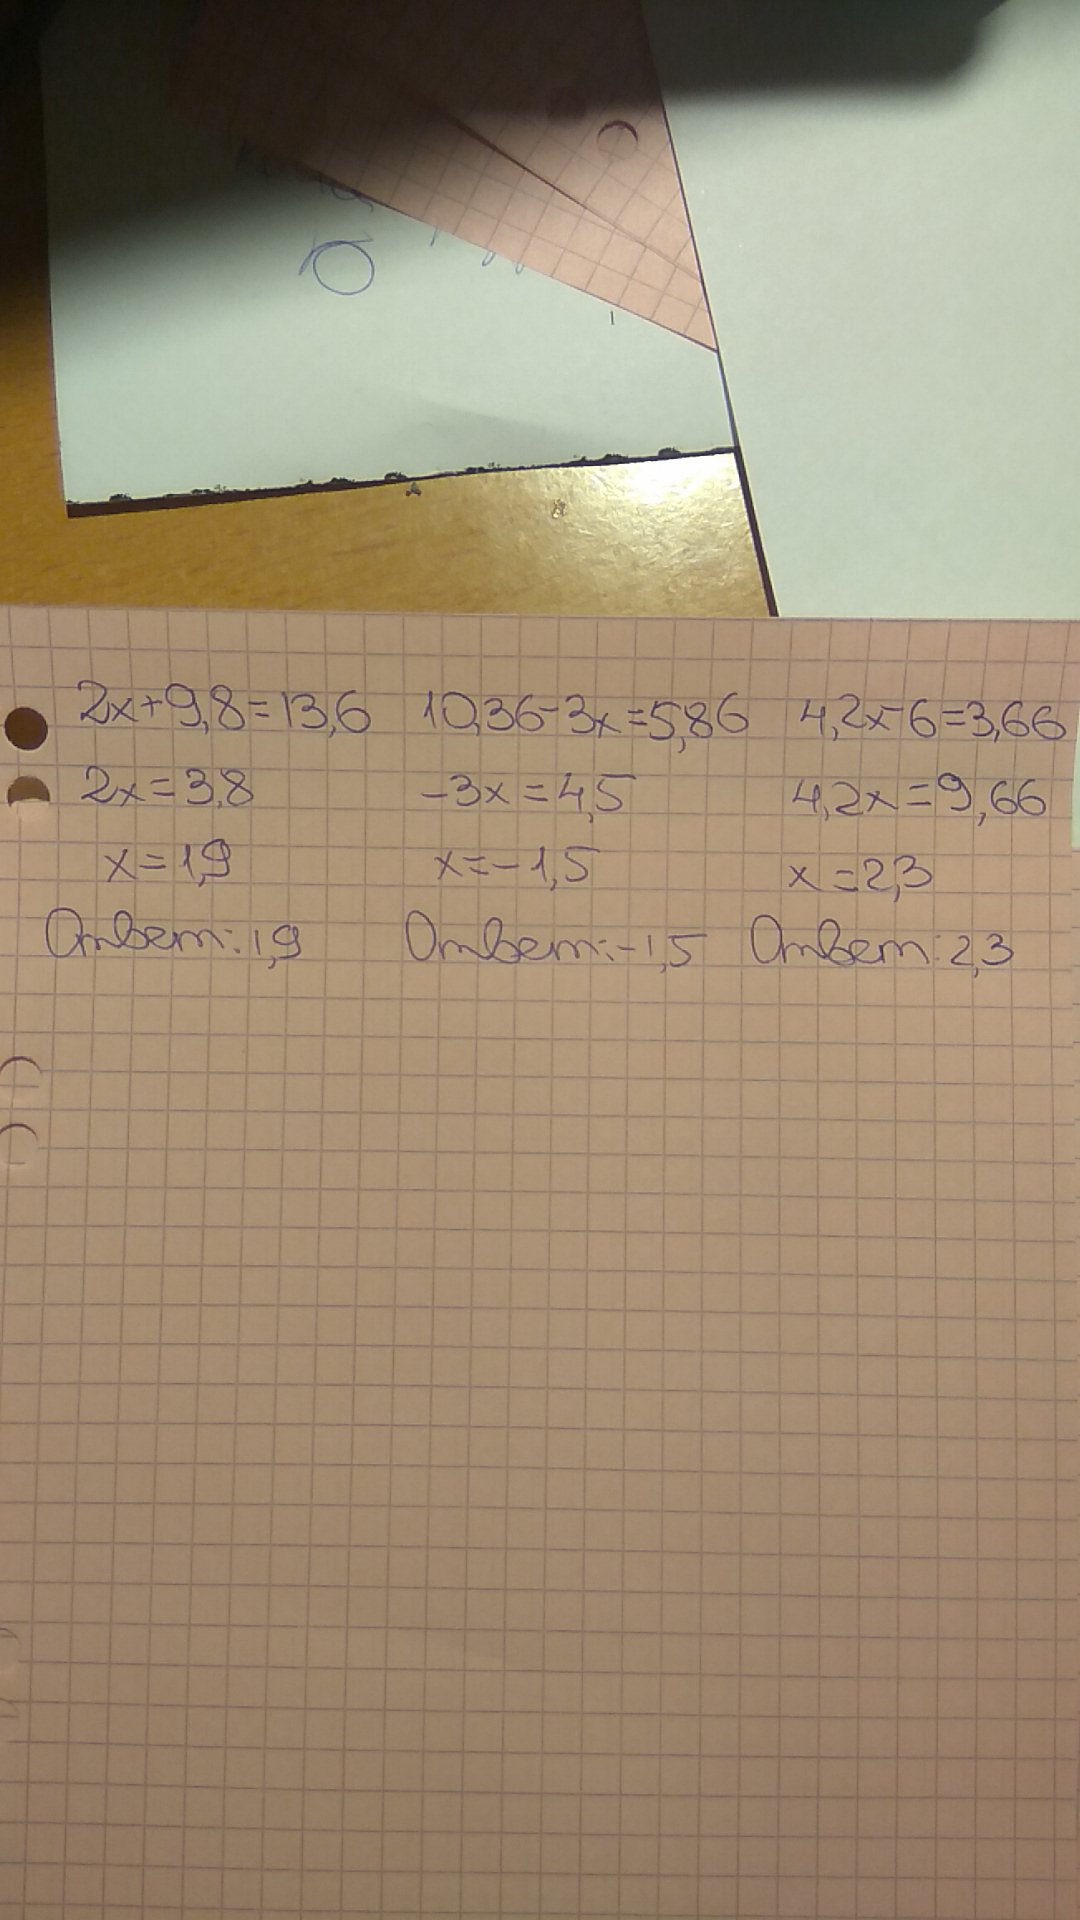 2x+9,8=13,6
2x=3,8
x=1,9
Ответ: 1,9
10,36-3x=5,86
-3x=4,5
x=-1,5
Ответ: -1,5
4,2x-6=3,66
4,2x=9,66
x=2,3
Ответ: 2,3